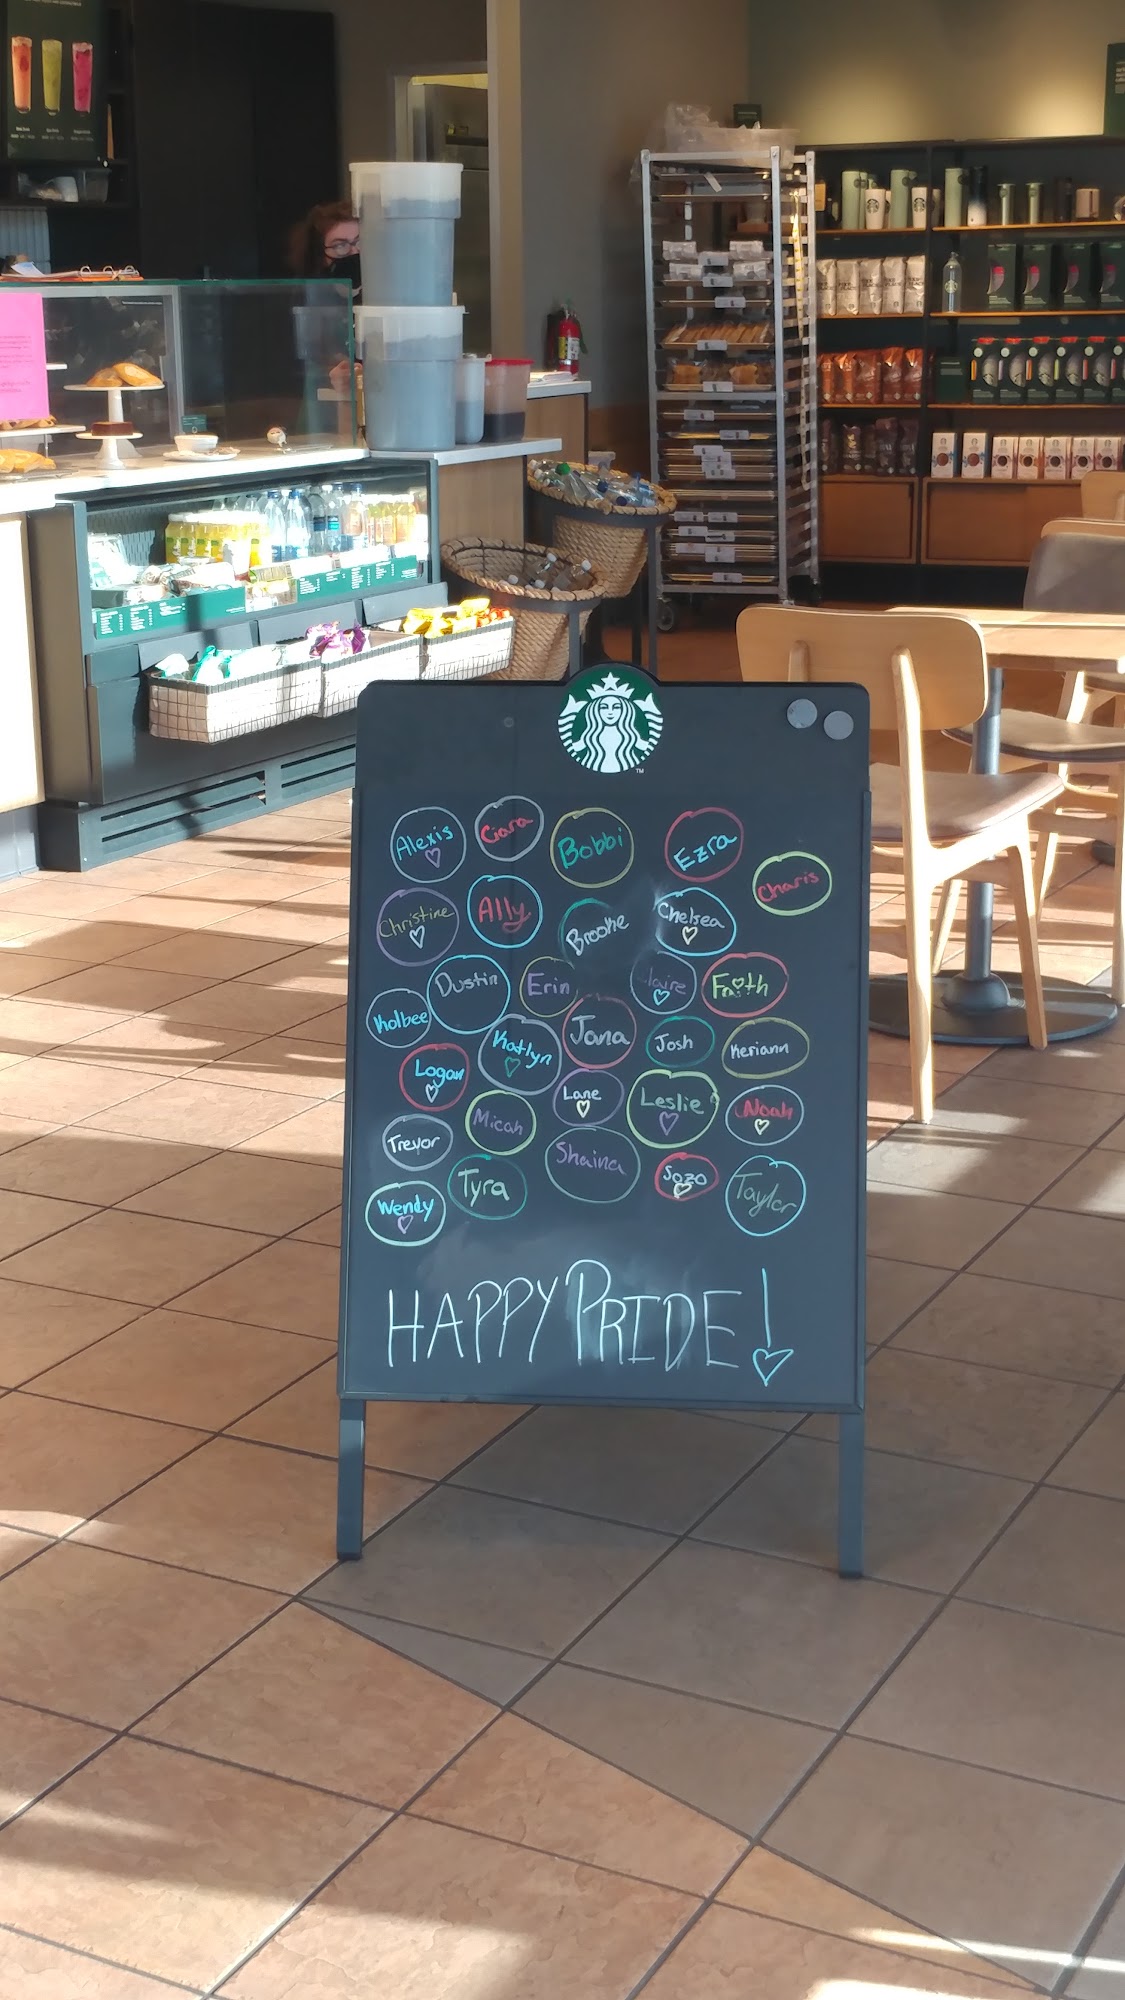 TM
Alexis Ciara Bobbi Ezra
Charis
Christine Ally Brooke Chelsea
Dustin Erin Claire Faith
Kolbee Katlyn Jana Josh Keriann
Logan Lane Leslie Noah
Trevor Micah Shaina Sozo
Wendy Tyra Taylor
HAPPY PRIDE!